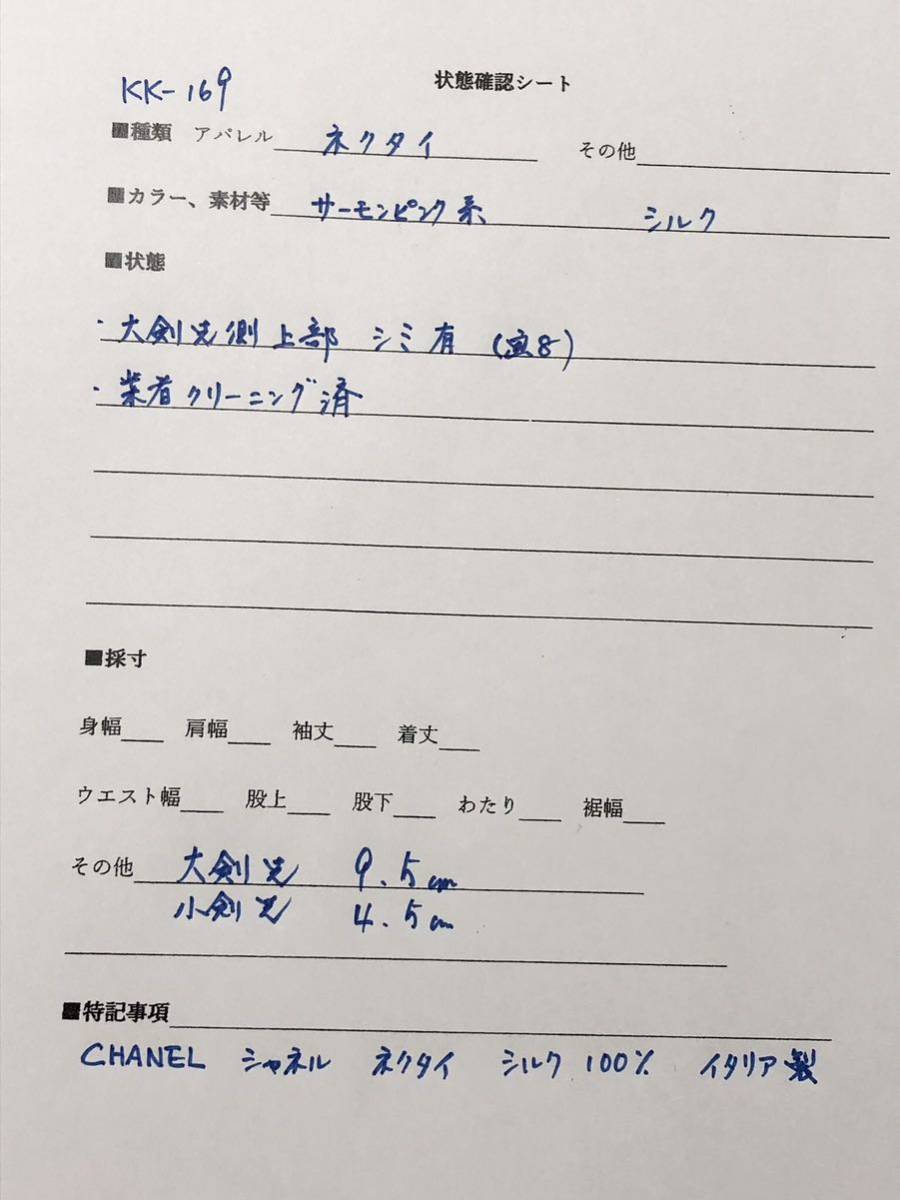 KK-169
状態確認シート
■種類 アパレル ネクタイ その他
■カラー、素材等 サーモンピンク系 シルク
■状態
・大剣先側上部 シミ有 (画8)
・業者クリーニング済
■採寸
身幅 肩幅 袖丈 着丈
ウエスト幅 股上 股下 わたり 裾幅
その他 大剣先 9.5cm
小剣先 4.5cm
■特記事項
CHANEL シャネル ネクタイ シルク 100% イタリア製